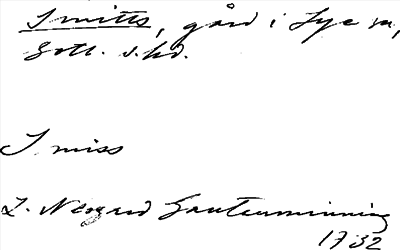 Smitts, gård i Lye sn,
Gotl. s. hd.
S. miss
L. Neogard Gautauminning
1732